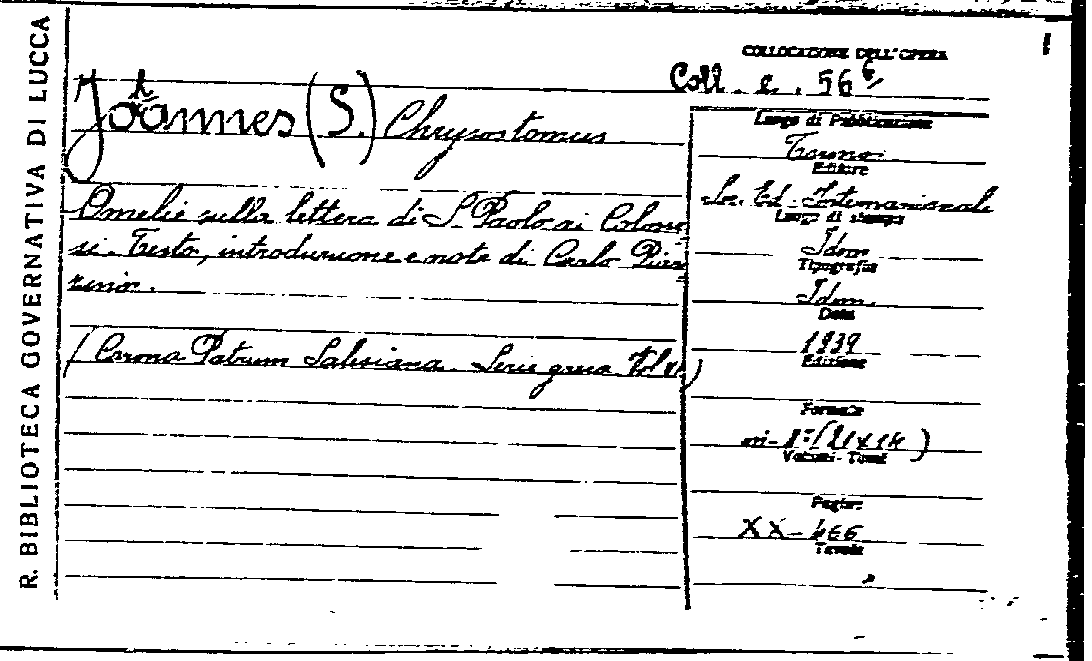 R. BIBLIOTECA GOVERNATIVA DI LUCCA
COLLOCAZIONE DELL'OPERA
Coll. e. 56
Johannes (S.) Chrysostomus
Omelie sulla lettera di S. Paolo ai Colos=
si. Testo, introduzione e note di Carlo
(Corona Patrum Salesiana. Serie greca Vol.
Luogo di Pubblicazione
Torino
Editore
Soc. Ed. Internazionale
Luogo di stampa
Idem
Tipografia
Idem.
Data
1939
Edizione
Formato
in-8°
Volumi - Tomi
Pagine
XX-466
Tavole